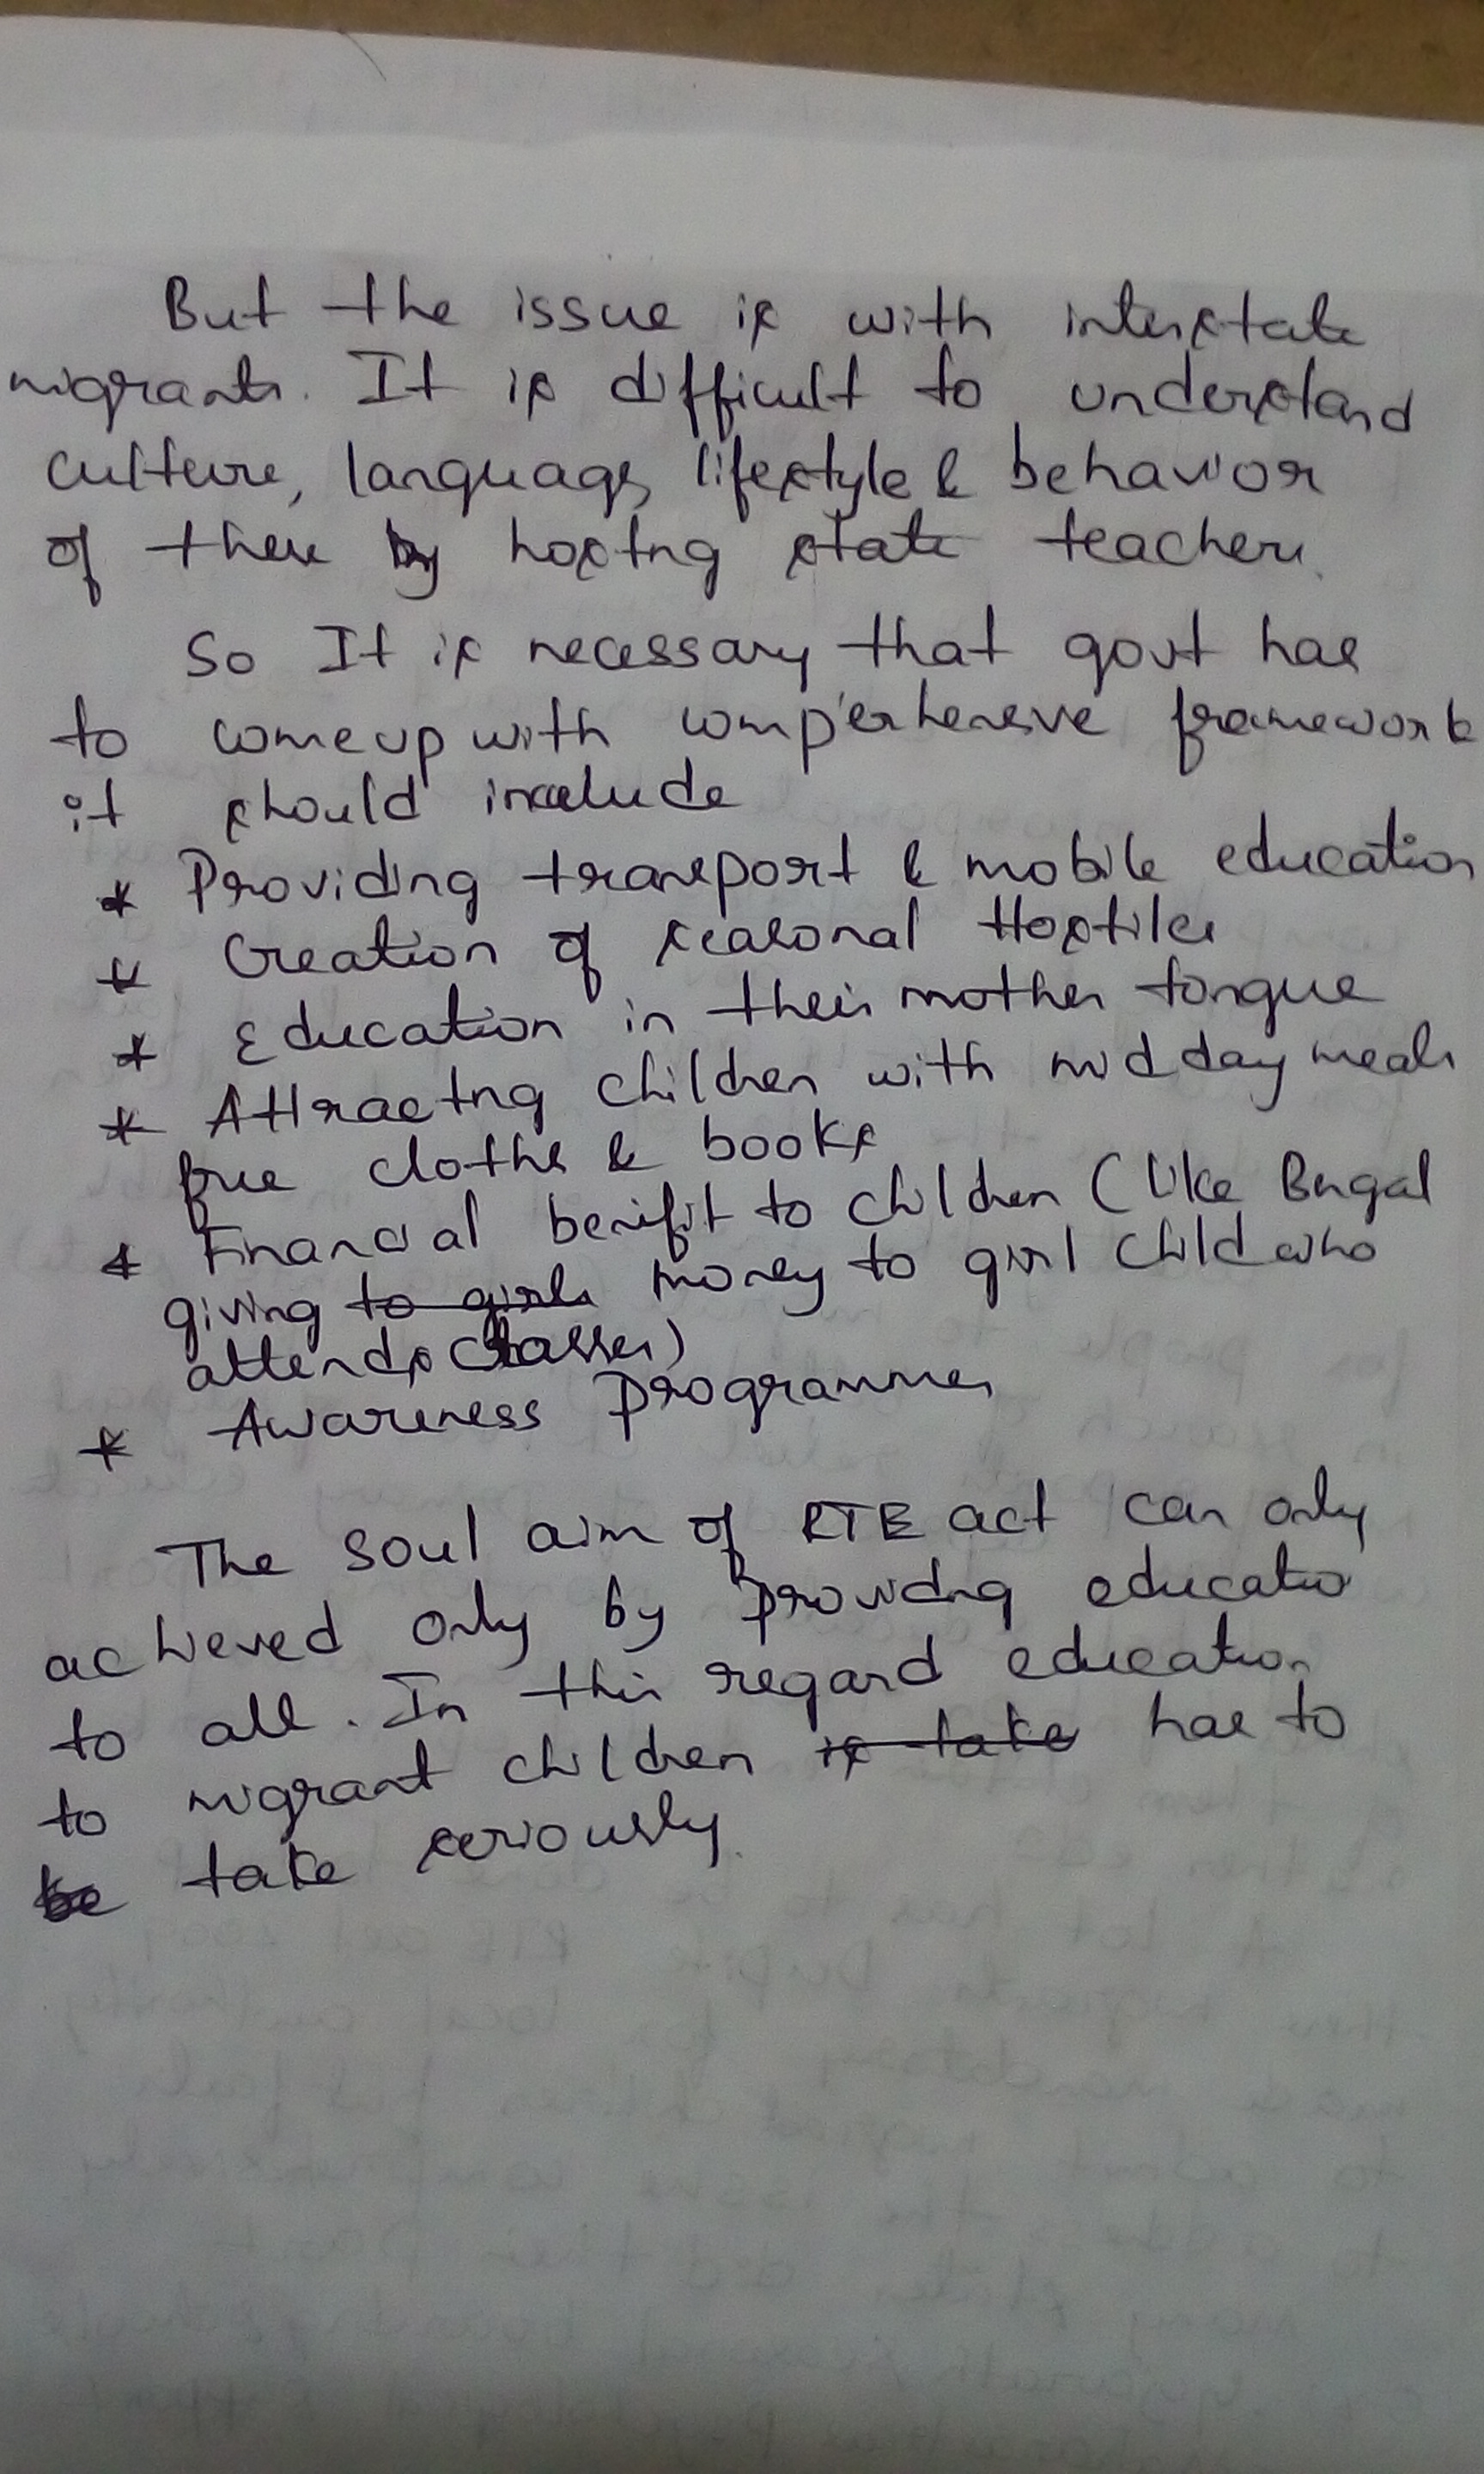 But the issue is with interstate
migrants. It is difficult to understand
culture, language, lifestyle & behavior
of these by hosting state teachers.
So It is necessary that govt has
to come up with comperhensive framework
it should include
* Providing transport & mobile education
* Creation of seasonal Hostiles
* Education in their mother tongue
* Attracting children with mid day meals
free clothes & books
* Financial benifit to children (like Bengal
giving to girls money to girl child who
attends classes)
* Awareness Programmes
The soul aim of RTE act can only
achieved only by providing educatio
to all. In this regard education
to migrant children is take has to
be take seriously.